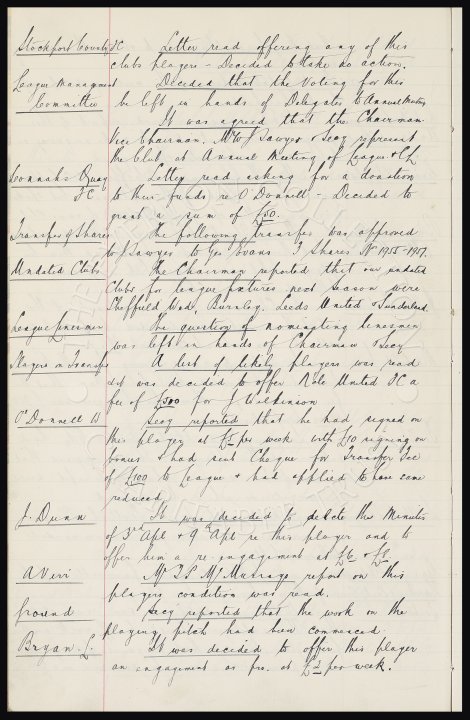 Stockport County FC Letter read offering any of this
clubs players - Decided to take no action.
League Management Decided that the Voting for this
Committee be left in hands of Delegates to Annual Meeting
It was agreed that the Chairman
Vice Chairman, Mr W J Sawyer & Secy represent
the Club, at Annual Meeting of League
Connahs Quay Letter read asking for a donation
FC to their funds re O'Donnell - Decided to
grant a sum of £50.
Transfer of Shares The following transfer was approved
W J Sawyer to Geo Evans 3 Shares No 1955-1957.
Undated Clubs The Chairman reported that our undated
Clubs for league fixtures next season were
Sheffield Wed, Burnley, Leeds United & Sunderland.
League Linesmen The question of nominating linesmen
was left in hands of Chairman & Secy
Players on Transfer A list of likely players was read
& it was decided to offer United FC a
fee of £500 for J Wilkinson
O'Donnell W Secy reported that he had signed on
this player at £5 per week with £10 signing on
bonus & had sent Cheque for Transfer Fee
of £100 to League & had applied to have same
reduced.
J. Dunn It was decided to delete the Minutes
of 3rd Apl & 9th Apl re this player and to
offer him a re-engagement at £6 & £8.
A Veri Mr T S McMurray report on this
players condition was read.
Ground Secy reported that the work on the
playing pitch had been commenced
Bryan. L. It was decided to offer this player
an engagement as pro. at £2 per week.